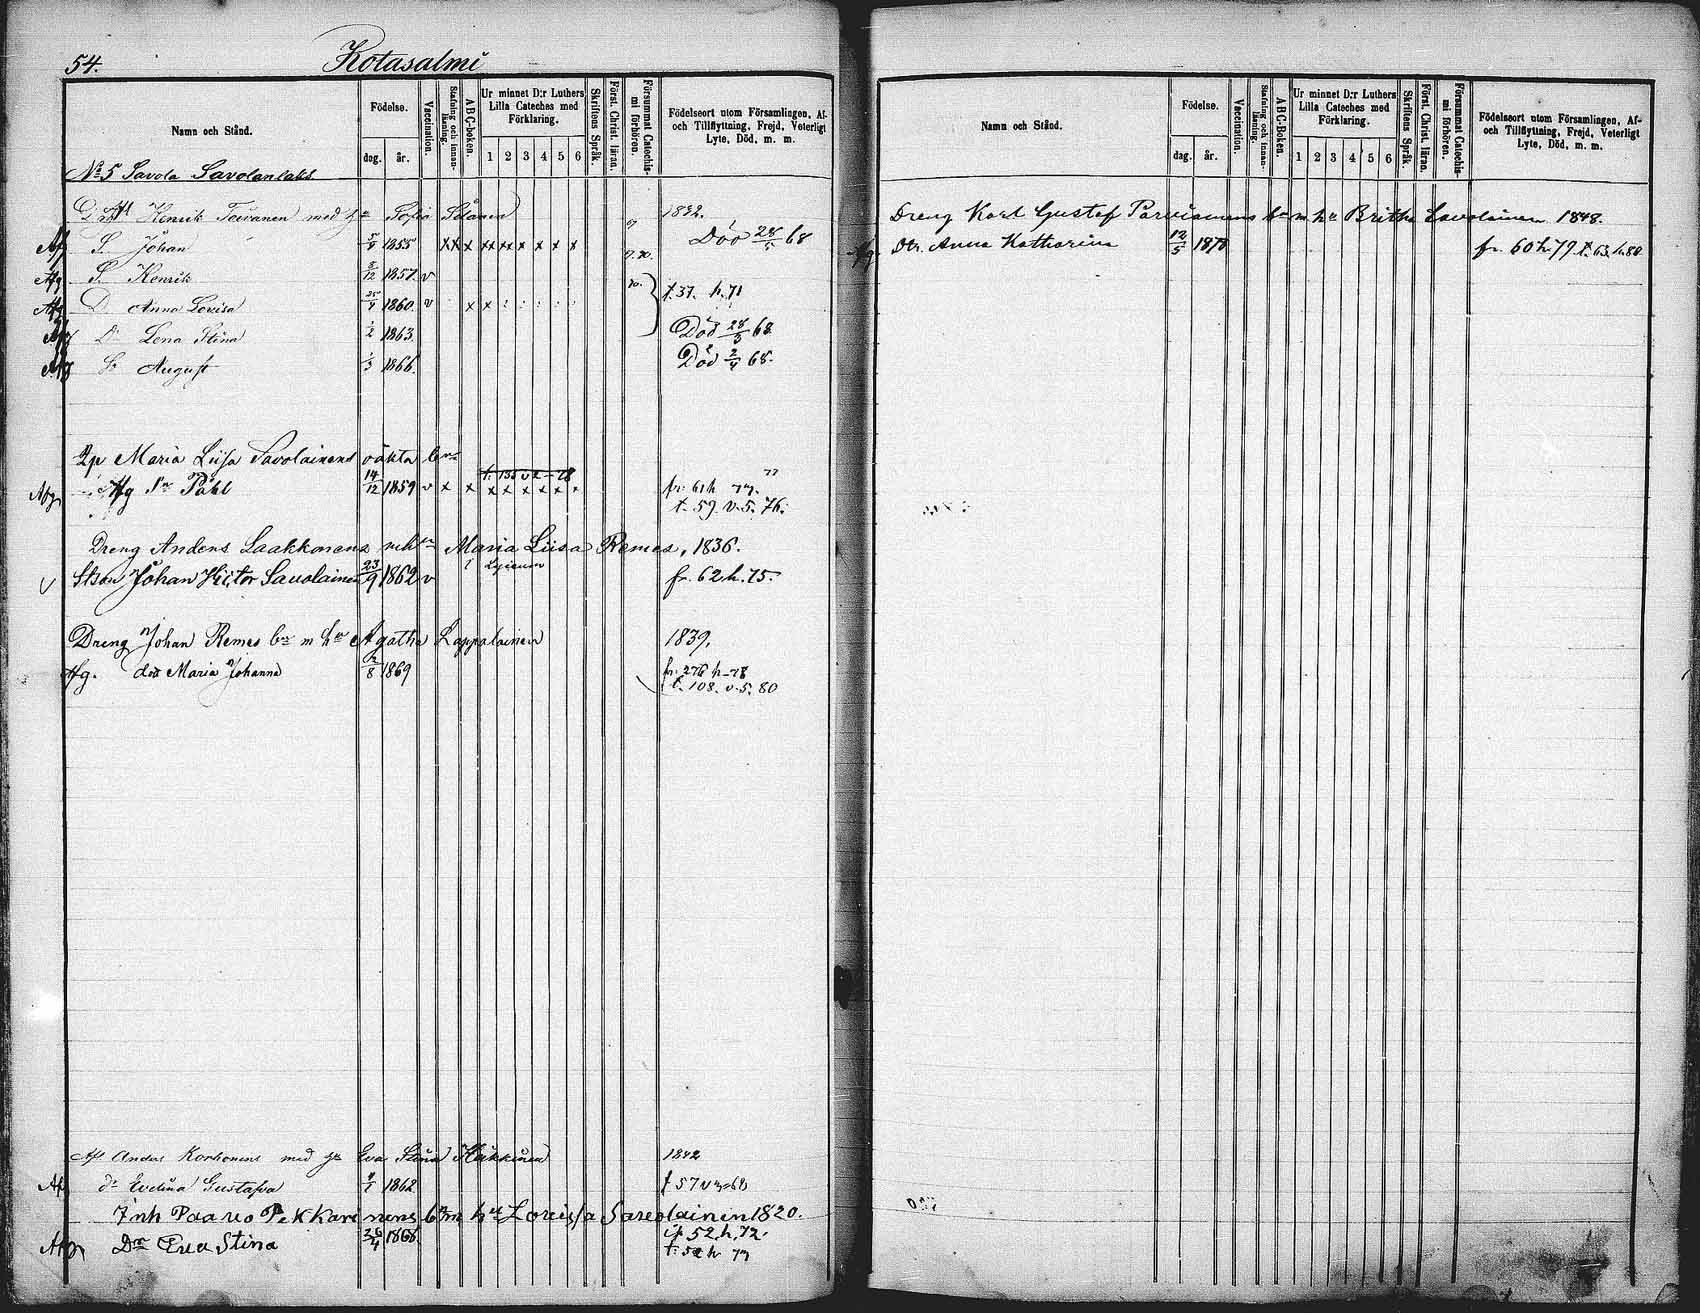 54. Kotasalmi
Namn och Stånd.
Födelse.
dag. år.
Vaccination.
Stafning och innanläsning.
ABC-boken.
Ur minnet D:r Luthers Lilla Cateches med Förklaring.
1 2 3 4 5 6
Skriftens Språk.
Först. Christ. läran.
Försummat Catechismi förhören.
Födelseort utom Församlingen, Af- och Tillflyttning, Frejd, Veterligt Lyte, Död, m. m.
No 5 Savola Savolanlaks
Henrik Toivanen med Sofia 1832.
S. Johan 5/9 1855 x x x x x x x x x Död 28/5 68
Afg S. Henrik 8/12 1857 v
Afg D. Anna Lovisa 25/9 1860 v x x t. 37. h. 71
Afg Dr Lena Stina 1/2 1863 Död 28/5 68
Afg Sn August 1/3 1866. Död 2/4 68.
Maria Liisa Savolainens oäkta
t. 135 v 2 - 78
Afg Afg Sn Påhl 14/12 1859 v x x x x x x x fr. 61 h 77.
t. 59. v. 5. 76.
Dreng Anders Laakkonens Maria Liisa Remes, 1836.
v Stson Johan Victor Savolainen 23/9 1862 v Lyceum fr. 62 h. 75.
Dreng Johan Remes bn m hu Agatha Lappalainen 1839.
Afg. dotr Maria Johanna 2/8 1869 fr. 276 h - 78
t. 108. v. 5. 80
Anders Korhonens med Eva Stina Heikkinen 1842
dr Evelina Gustafva 1862 t 57 v 3 = 68
Inh Paavo Pekkarinens bn m hu Lovissa Savolainen 1820.
Afg Dr Eva Stina 26/4 1868 ifr 52. h. 72.
t: 52 h 77
Namn och Stånd.
Födelse.
dag. år.
Vaccination.
Stafning och innanläsning.
ABC-boken.
Ur minnet D:r Luthers Lilla Cateches med Förklaring.
1 2 3 4 5 6
Skriftens Språk.
Först. Christ. läran.
Försummat Catechismi förhören.
Födelseort utom Församlingen, Af- och Tillflyttning, Frejd, Veterligt Lyte, Död, m. m.
Dreng Karl Gustaf Parviainens bn m. hu Britha Savolainen 1848.
Afg. Dtr. Anna Katharina 12/5 1878 fr. 60 h 79 t. 63. h. 80